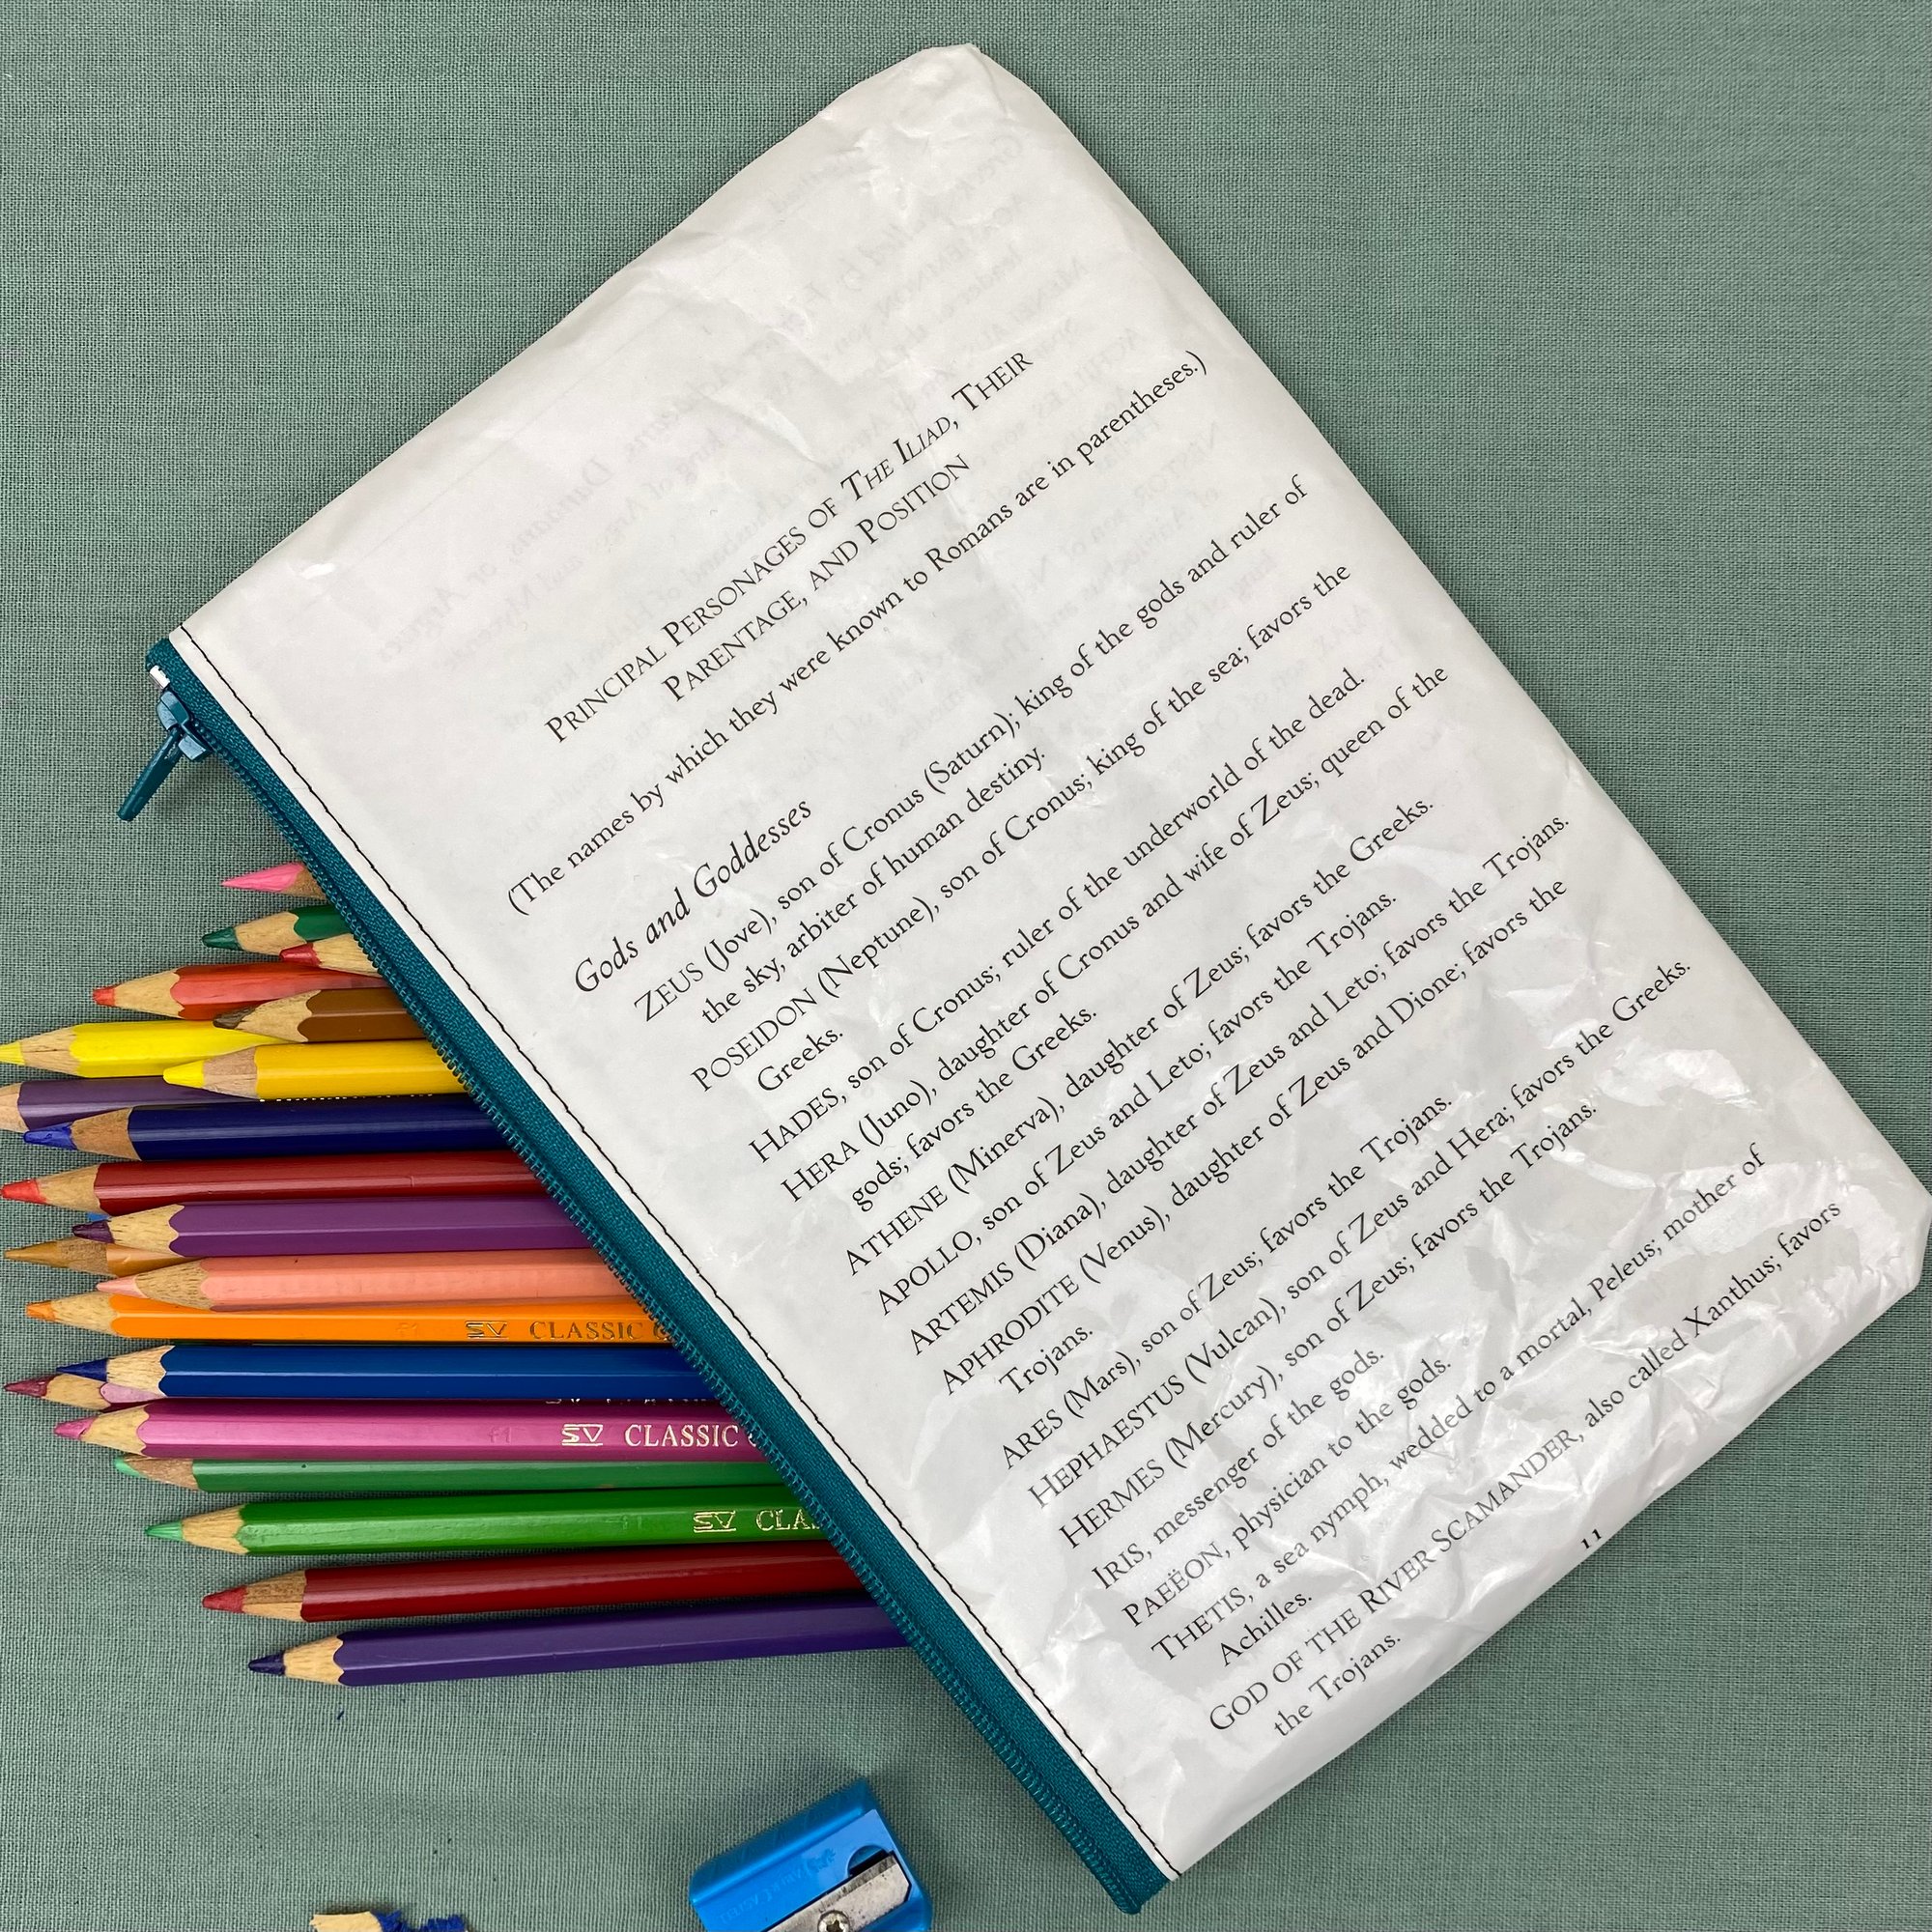 PRINCIPAL PERSONAGES OF THE ILIAD, THEIR
PARENTAGE, AND POSITION
(The names by which they were known to Romans are in parentheses.)
Gods and Goddesses
ZEUS (Jove), son of Cronus (Saturn); king of the gods and ruler of
the sky, arbiter of human destiny.
POSEIDON (Neptune), son of Cronus; king of the sea; favors the
Greeks.
HADES, son of Cronus; ruler of the underworld of the dead.
HERA (Juno), daughter of Cronus and wife of Zeus; queen of the
gods; favors the Greeks.
ATHENE (Minerva), daughter of Zeus; favors the Greeks.
APOLLO, son of Zeus and Leto; favors the Trojans.
ARTEMIS (Diana), daughter of Zeus and Leto; favors the Trojans.
APHRODITE (Venus), daughter of Zeus and Dione; favors the
Trojans.
ARES (Mars), son of Zeus; favors the Trojans.
HEPHAESTUS (Vulcan), son of Zeus and Hera; favors the Greeks.
HERMES (Mercury), son of Zeus; favors the Trojans.
IRIS, messenger of the gods.
PAEËON, physician to the gods.
THETIS, a sea nymph, wedded to a mortal, Peleus; mother of
Achilles.
GOD OF THE RIVER SCAMANDER, also called Xanthus; favors
the Trojans.
11
CLASSIC
CLASSIC